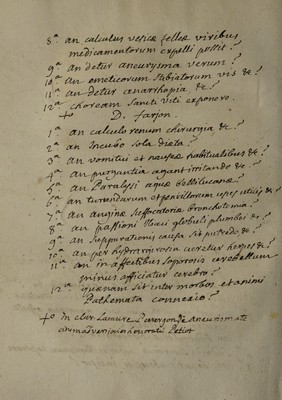 8ª an calculus vesicæ felleæ viribus
medicamentorum expelli possit?
9ª an detur aneurysma verum?
10ª an emeticorum stibiatorum vis &c?
11ª an detur anarrhopia &c?
12ª choream sancti viti exponere.
D. farjon.
1ª an calculo renum chirurgia &c?
2ª an Incubo sola diæta?
3ª an vomitui et nauseæ habitualibus &c?
4ª an purgantia agant irritando &c?
5ª an Paralysi aquæ bellilucanæ?
6ª an turundarum et penicillorum usus utilis &c?
7ª an anginæ suffocatoriæ bronchotomia?
8ª an passioni Iliacæ globuli plumbei &c?
9ª an suppurationis causa sit putredo &c?
10ª an per hydrargyrosia
11ª an in affectibus soporosis cerebellum
minus afficiatur cerebro?
12ª quænam sit inter morbos et animi
Pathemata connexio?
In clar. Lamure de aneurismate
animadversiones honorati Petiot